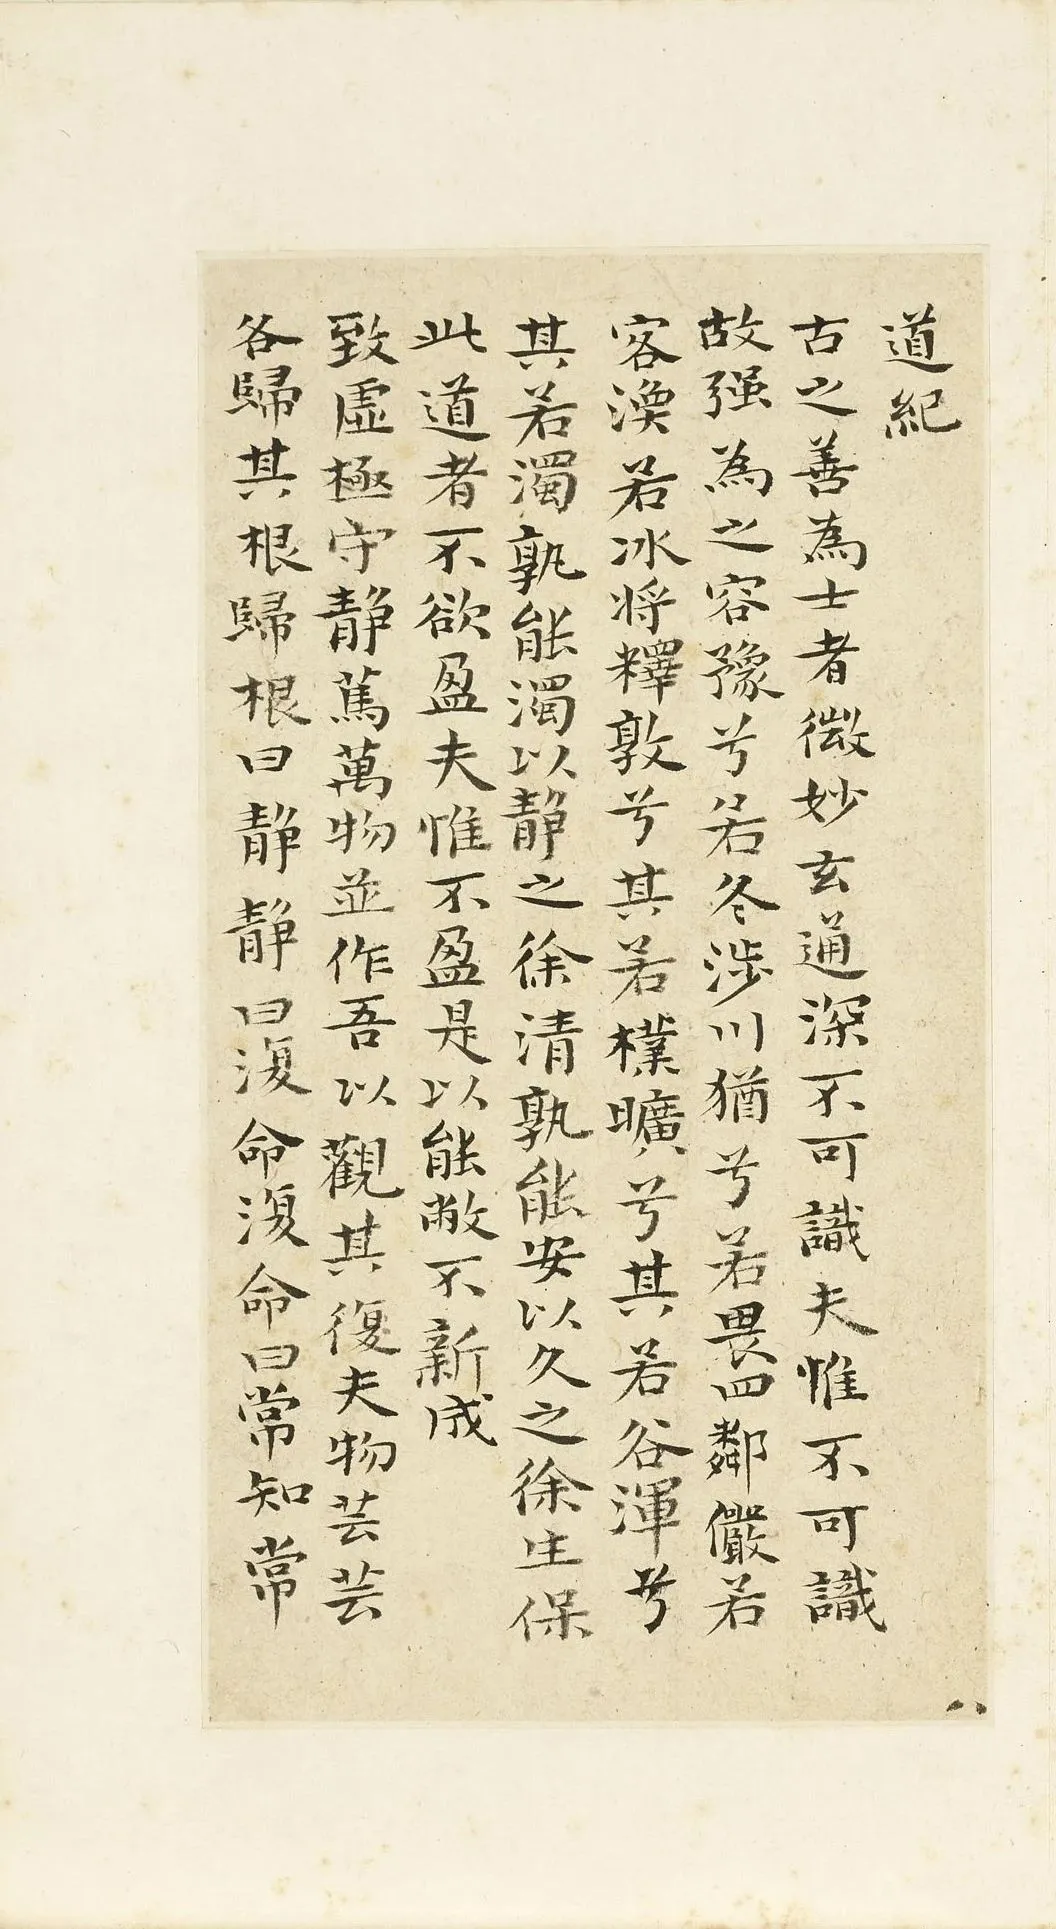 道紀
古之善為士者微妙玄通深不可識夫惟不可識
故强為之容豫兮若冬涉川猶兮若畏四鄰儼若
客渙若冰將釋敦兮其若樸曠兮其若谷渾兮
其若濁孰能濁以静之徐清孰能安以久之徐生保
此道者不欲盈夫惟不盈是以能敝不新成
致虚極守静篤萬物並作吾以觀其復夫物芸芸
各歸其根歸根曰静静曰復命復命曰常知常
八